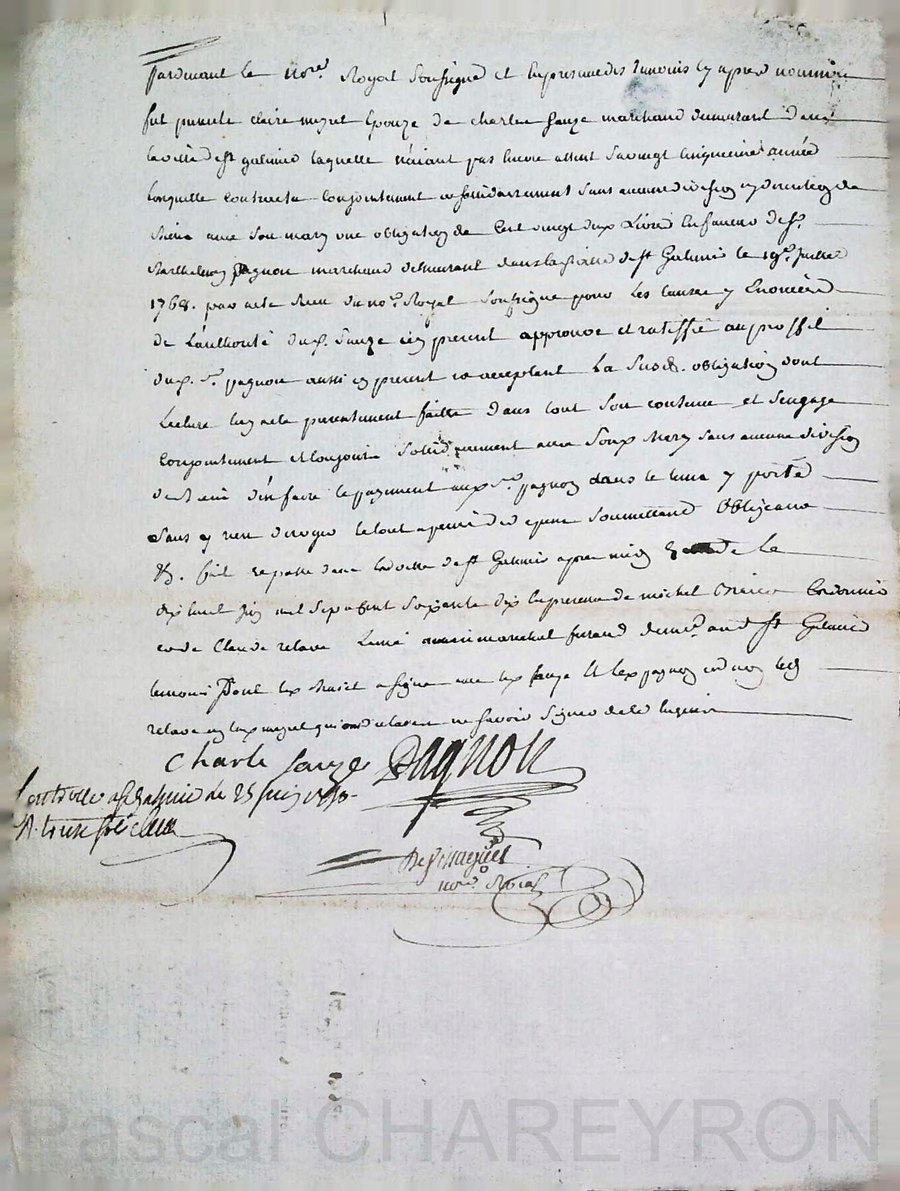 Pardevant le no.re Royal Soussigné et en presence des temoins cy apres nommés
fut presente claire mizet Epouze de charles Sauze marchand demurant dans
la ville de st galmier laquelle n'aiant pas encore attint sa vingt cinquieme année
lorsquelle contracta conjointement et solidairement sans aucune division ny discution de
biens avec son mary une obligation de Cent vingt deux Livres en faveur de sr
Barthelemy pagnon marchand demeurant dans la ville de st Galmier le 19e Juillet
1768. par acte Recu du no.re Royal Soussigné pour les causes y Enoncées
de L'authorité dud. Sauze icy present approuve et ratiffie au proffit
dud. sr pagnon aussi cy present et acceptant La Susd. obligation dont
Lecture luy a eté presentement faitte dans tout son contenu et s'engage
conjointement et toujours solidairement avec Son d. Mary sans aucune division
de biens d'en faire le payment aud. sr pagnon dans le terme y porté
sans y rien deroger le tout a peine de depens Soumettant Obligeant
&. fait et passé dans la ville de st Galmier apres midy le
dix huit juin mil sept cent soixante dix en presence de michel cordonnier
et de Claude relave L'ainé marechal ferand demt. aud. st Galmier
temoins dont led. a signé avec led. Sauze et led. pagnon et non led.
relave ny lad. mizet qui ont declaré ne savoir signer de ce enquis
Charle Sauze Pagnon
Contrôllé a st galmier le 25 juin 1770
R. treize sols
no.re Roial
Pascal CHAREYRON